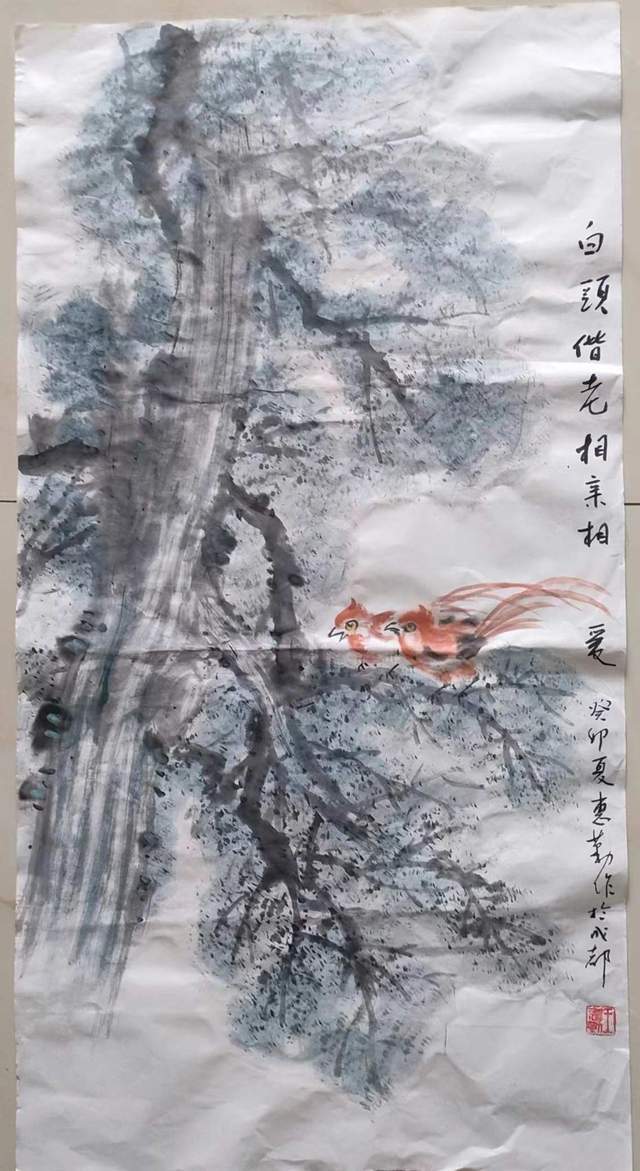 白頭偕老相亲相爱
癸卯夏惠勤作於成都